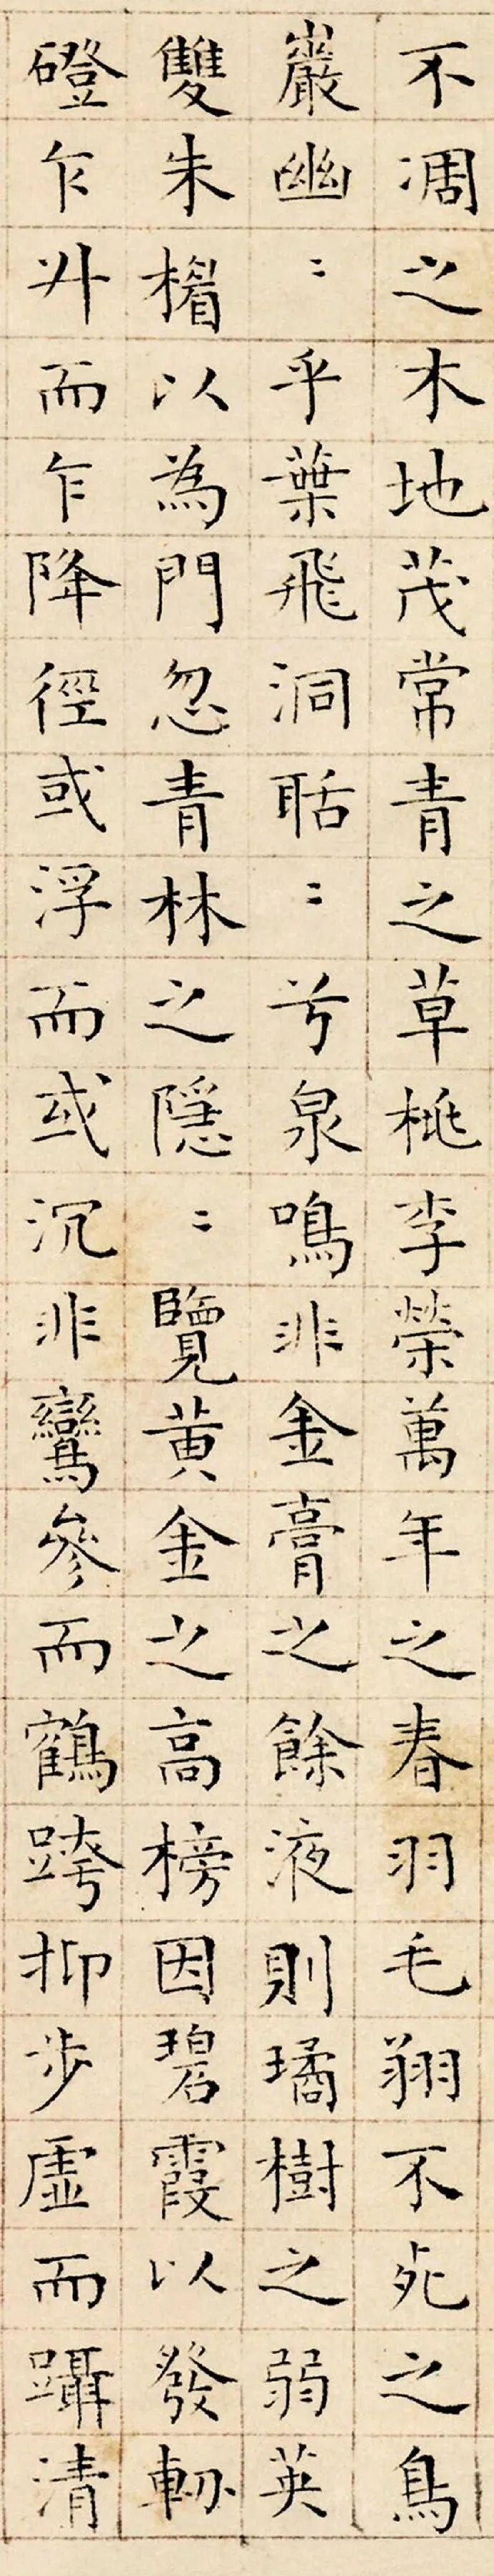 不凋之木地茂常青之草桃李榮萬年之春羽毛翔不死之鳥
巖幽〻乎葉飛洞聒〻兮泉鳴非金膏之餘液則璚樹之弱英
雙朱楣以為門忽青林之隱〻覽黄金之高榜因碧霞以發軔
磴乍升而乍降徑或浮而或沉非鸞參而鶴跨抑步虛而躡清